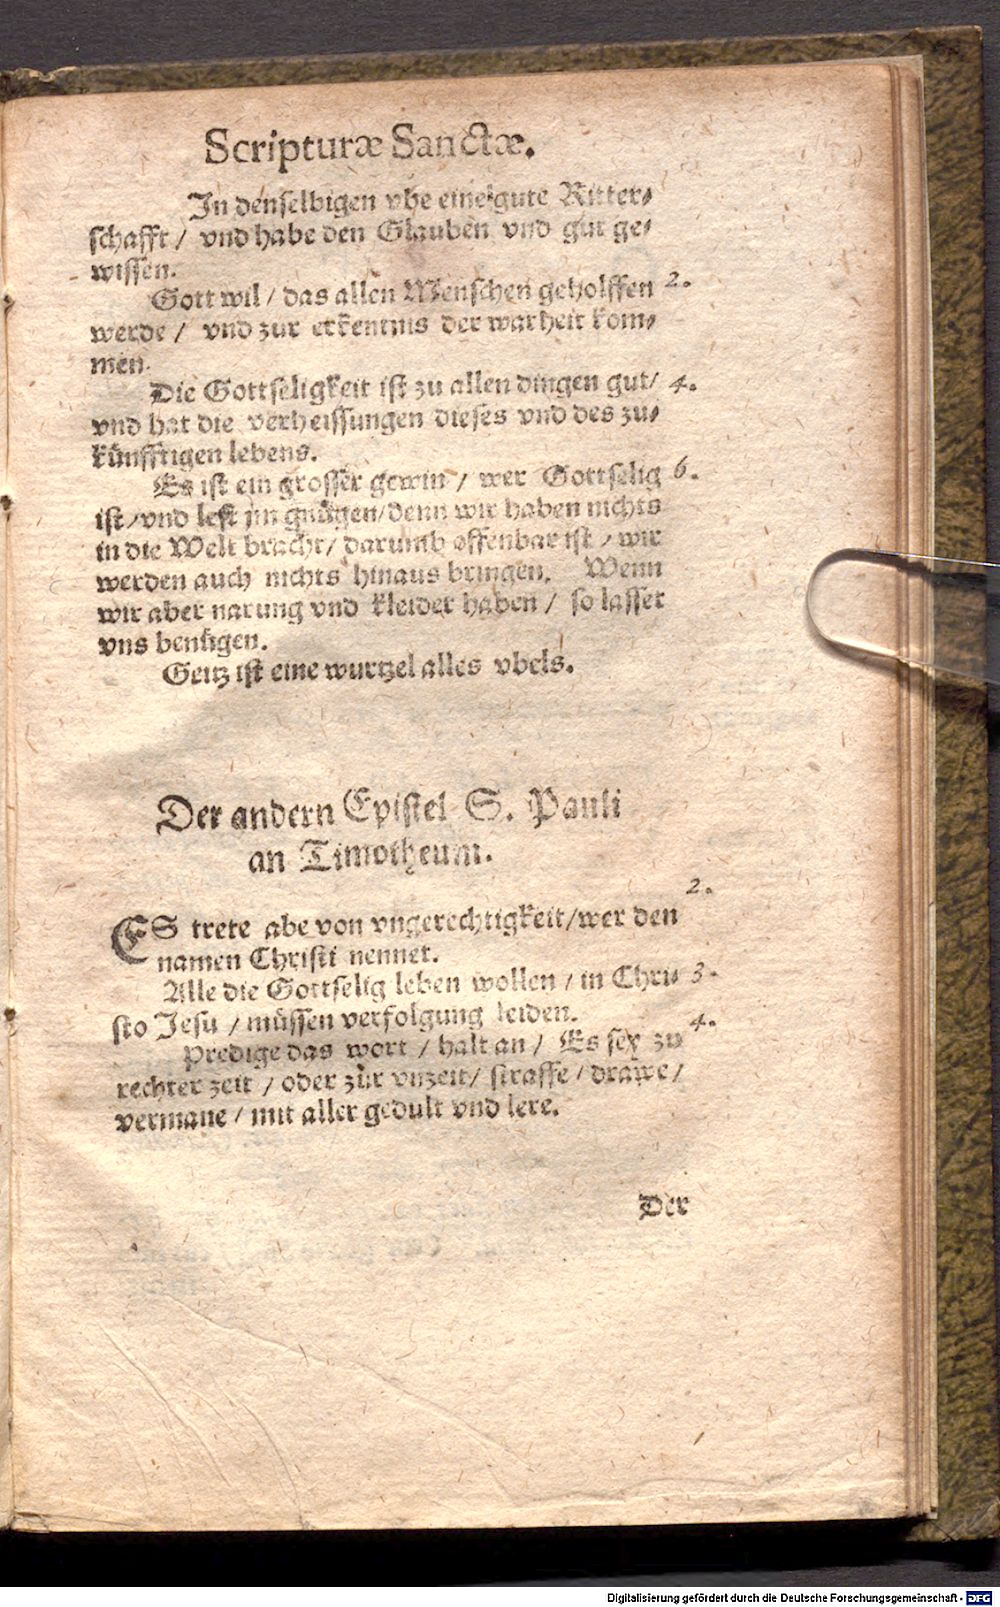 Scripturæ Sanctæ.
In denselbigen vbe eine gute Ritter⸗
schafft / vnd habe den Glauben vnd gut ge⸗
wissen.
Gott wil / das allen Menschen geholffen 2.
werde / vnd zur erkentnis der warheit kom⸗
men.
Die Gottseligkeit ist zu allen dingen gut / 4.
vnd hat die verheissungen dieses vnd des zu⸗
künfftigen lebens.
Es ist ein grosser gewin / wer Gottselig 6.
ist / vnd lest jm gnügen / denn wir haben nichts
in die Welt bracht / darumb offenbar ist / wir
werden auch nichts hinaus bringen. Wenn
wir aber narung vnd kleider haben / so lasset
vns benügen.
Geitz ist eine wurtzel alles vbels.
Der andern Epistel S. Pauli
an Timotheum.
2.
ES trete abe von vngerechtigkeit / wer den
namen Christi nennet.
Alle die Gottselig leben wollen / in Chri⸗ 3.
sto Jesu / müssen verfolgung leiden.
Predige das wort / halt an / Es sey zu 4.
rechter zeit / oder zur vnzeit / straffe / drawe /
vermane / mit aller gedult vnd lere.
Der
Digitalisierung gefördert durch die Deutsche Forschungsgemeinschaft - DFG